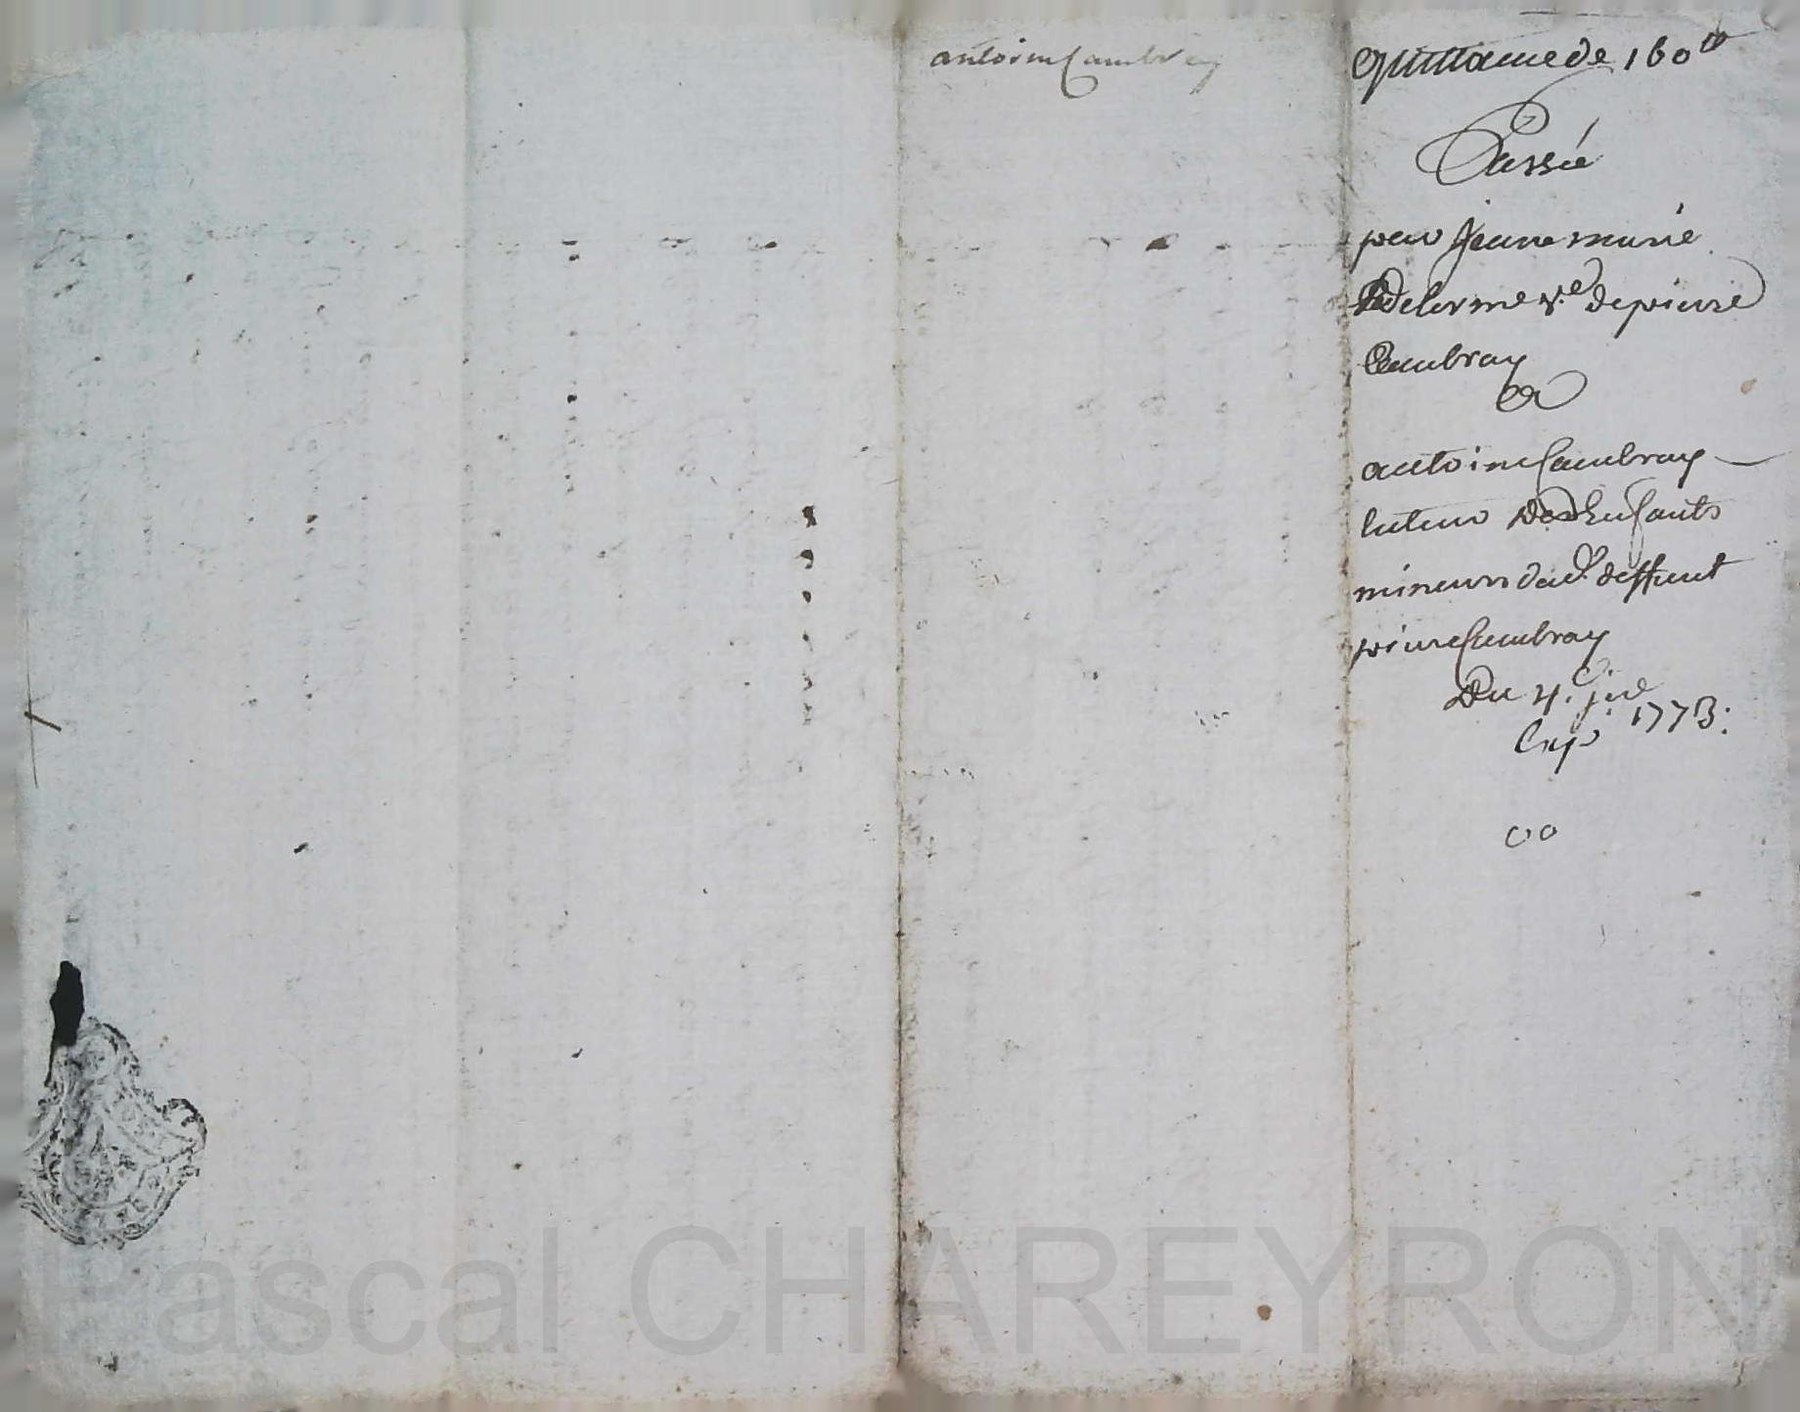 antoine Cambray
quittance de 160 tt
Passée
par Jeane marie
Delorme v.e de pierre
Cambray
a
antoine Cambray
tuteur des Enfants
mineurs dud. deffunt
pierre Cambray
Du 4.e
Exp.on 1773:
Pascal CHAREYRON